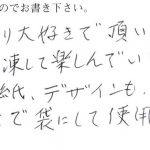 のでお書き下さい。
り大好きで頂い
凍して楽しんでい
紙、デザインも、
で袋にして使用